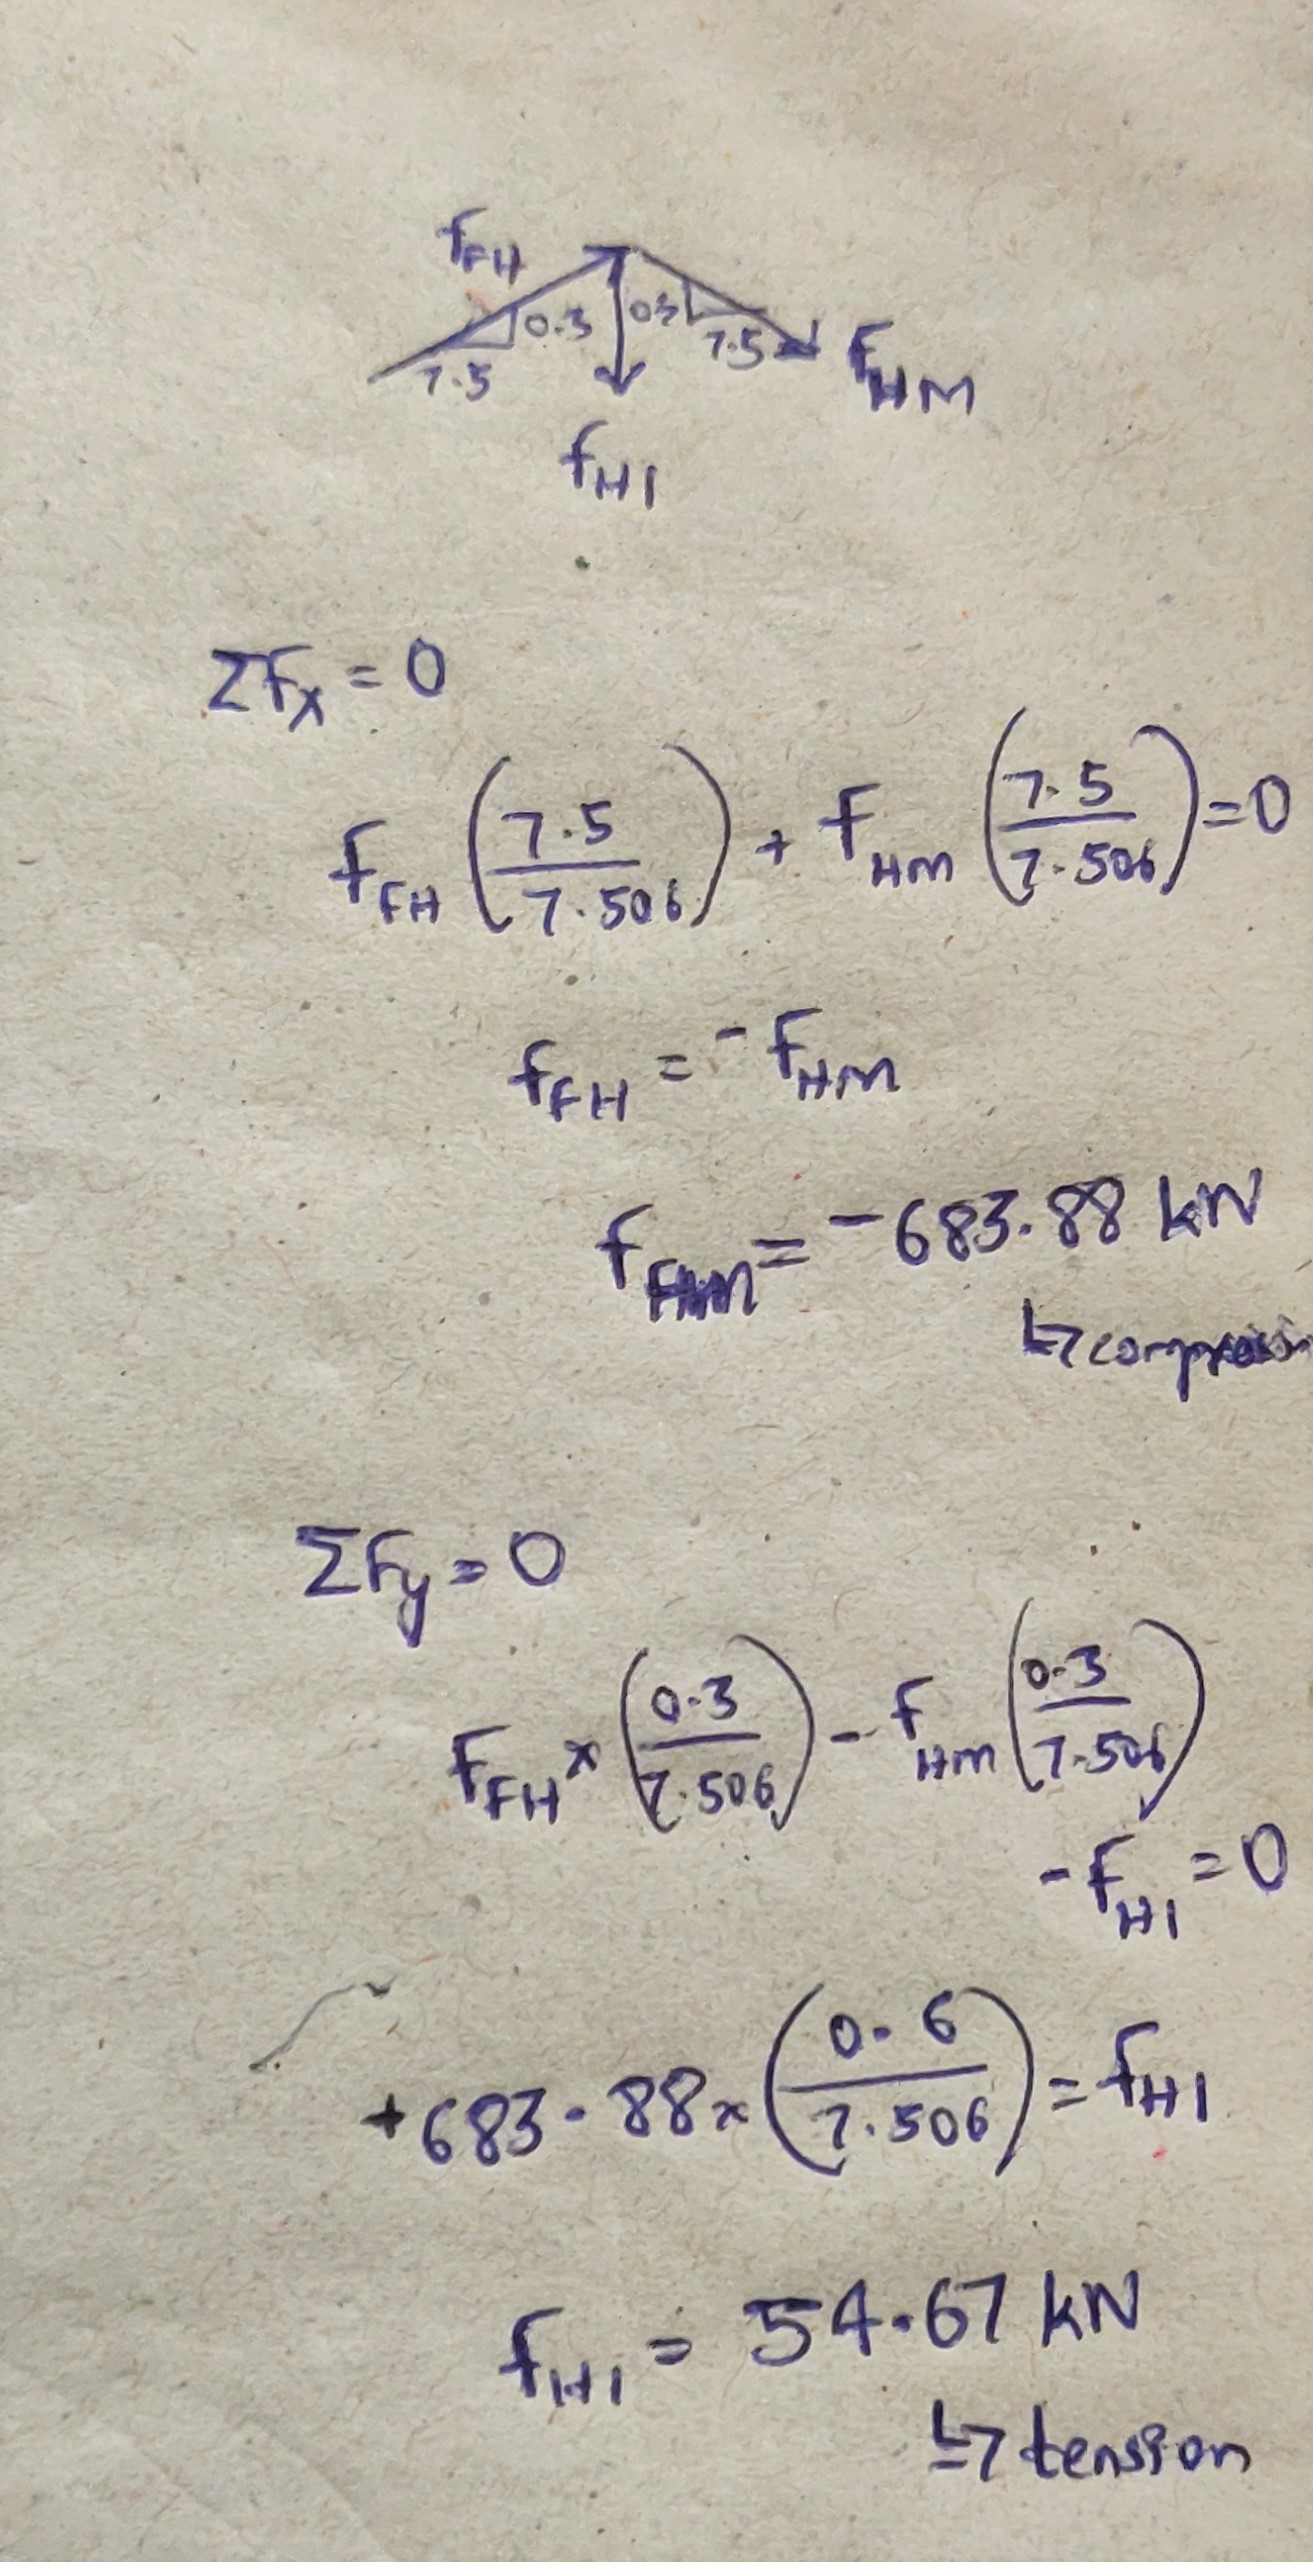 F_FH
0.3 0.3
7.5 7.5 F_HM
F_HI
ΣF_x = 0
F_FH (7.5/7.506) + F_HM (7.5/7.506) = 0
F_FH = - F_HM
= -683.88 kN
↳
ΣF_y = 0
F_FH × (0.3/7.506) - F_HM (0.3/7.506)
- F_HI = 0
+683.88 × (0.6/7.506) = F_HI
F_HI = 54.67 kN
↳ tension